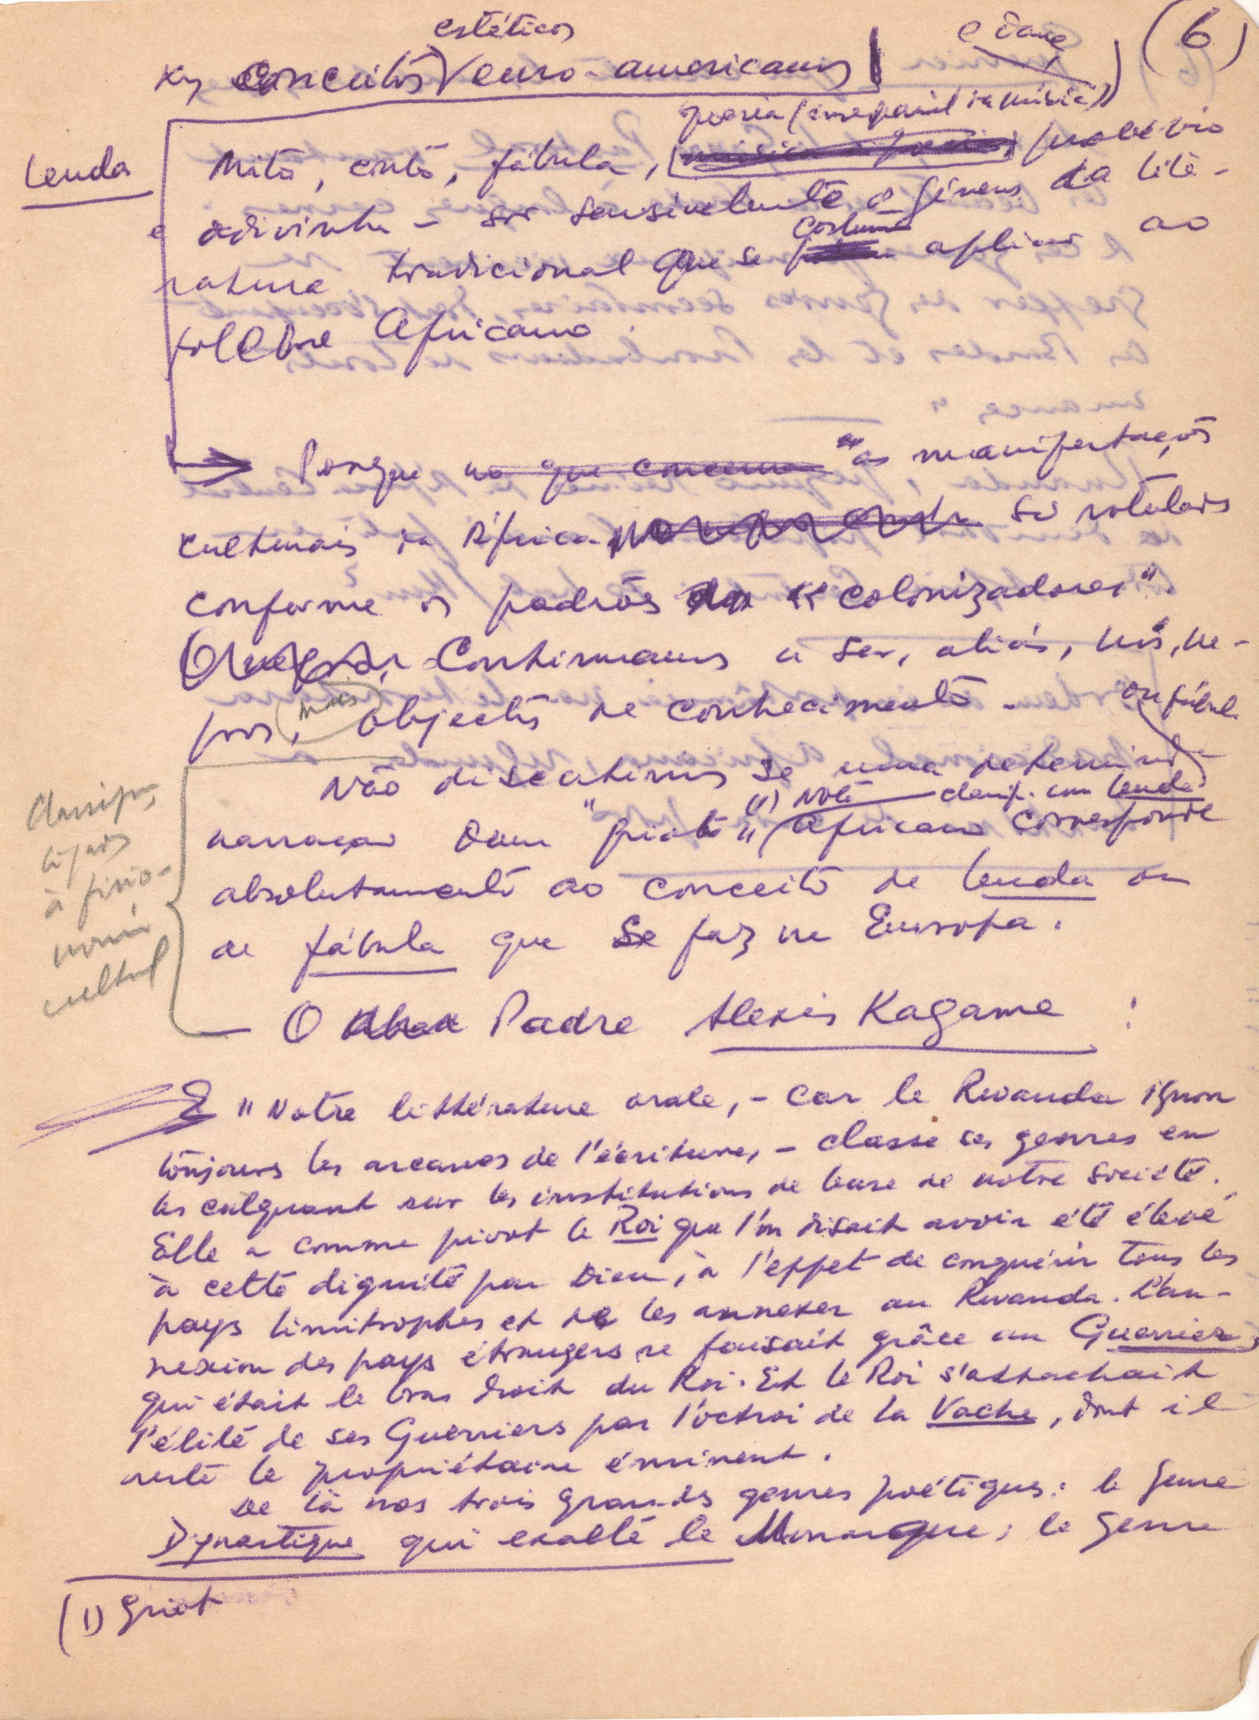 (6)
estéticos
conceitos euro-americanos
poesia (inseparável da música)
Lenda
Mito, conto, fábula, provérbio
adivinha - são sensivelmente os géneros da lite-
ratura tradicional que se costuma aplicar ao
folclore Africano.
Porque no que concerne "as manifestações
culturais da África são rotuladas
conforme os padrões dos "colonizadores".
Continuamos a ser, aliás, nós, ne-
gros, mais objectos de conhecimento -
ou fábula
Não discutimos se uma determinada
(1) Nota classif. como lenda
narração dum "griot" Africano corresponde
absolutamente ao conceito de lenda ou
de fábula que se faz na Europa.
Classifi-
à fisio-
nomia
cultural
O Padre Alexis Kagame :
"Notre littérature orale, - car le Rwanda ignora
toujours les arcanes de l'écriture, - classe ses genres en
les calquant sur les institutions de base de notre société.
Elle a comme pivot le Roi que l'on disait avoir été élevé
à cette dignité par Dieu, à l'effet de conquérir tous les
pays limitrophes et de les annexer au Rwanda. L'an-
nexion des pays étrangers se faisait grâce au Guerrier,
qui était le bras droit du Roi. Et le Roi s'attachait
l'élite de ses Guerriers par l'octroi de la Vache, dont il
reste le propriétaire éminent.
De là nos trois grands genres poétiques: le genre
Dynastique qui exalte le Monarque; le genre
(1) Griot